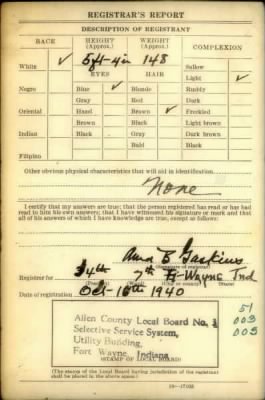 REGISTRAR'S REPORT
DESCRIPTION OF REGISTRANT
RACE HEIGHT (Approx.) WEIGHT (Approx.) COMPLEXION
White ✓ 5ft-4in 148 Sallow
EYES HAIR Light ✓
Negro Blue ✓ Blonde Ruddy
Gray Red Dark
Oriental Hazel Brown ✓ Freckled
Brown Black Light brown
Indian Black Gray Dark brown
Bald Black
Filipino
Other obvious physical characteristics that will aid in identification
None
I certify that my answers are true; that the person registered has read or has had
read to him his own answers; that I have witnessed his signature or mark and that
all of his answers of which I have knowledge are true, except as follows:
Anna E Gaskins
(Signature of registrar)
Registrar for 34th 7th Ft Wayne Ind
(Precinct) (Ward) (City or county) (State)
Date of registration Oct-16th 1940
51
Allen County Local Board No. 3 003
Selective Service System, 003
Utility Building,
Fort Wayne, Indiana
(STAMP OF LOCAL BOARD)
(The stamp of the Local Board having jurisdiction of the registrant
shall be placed in the above space.)